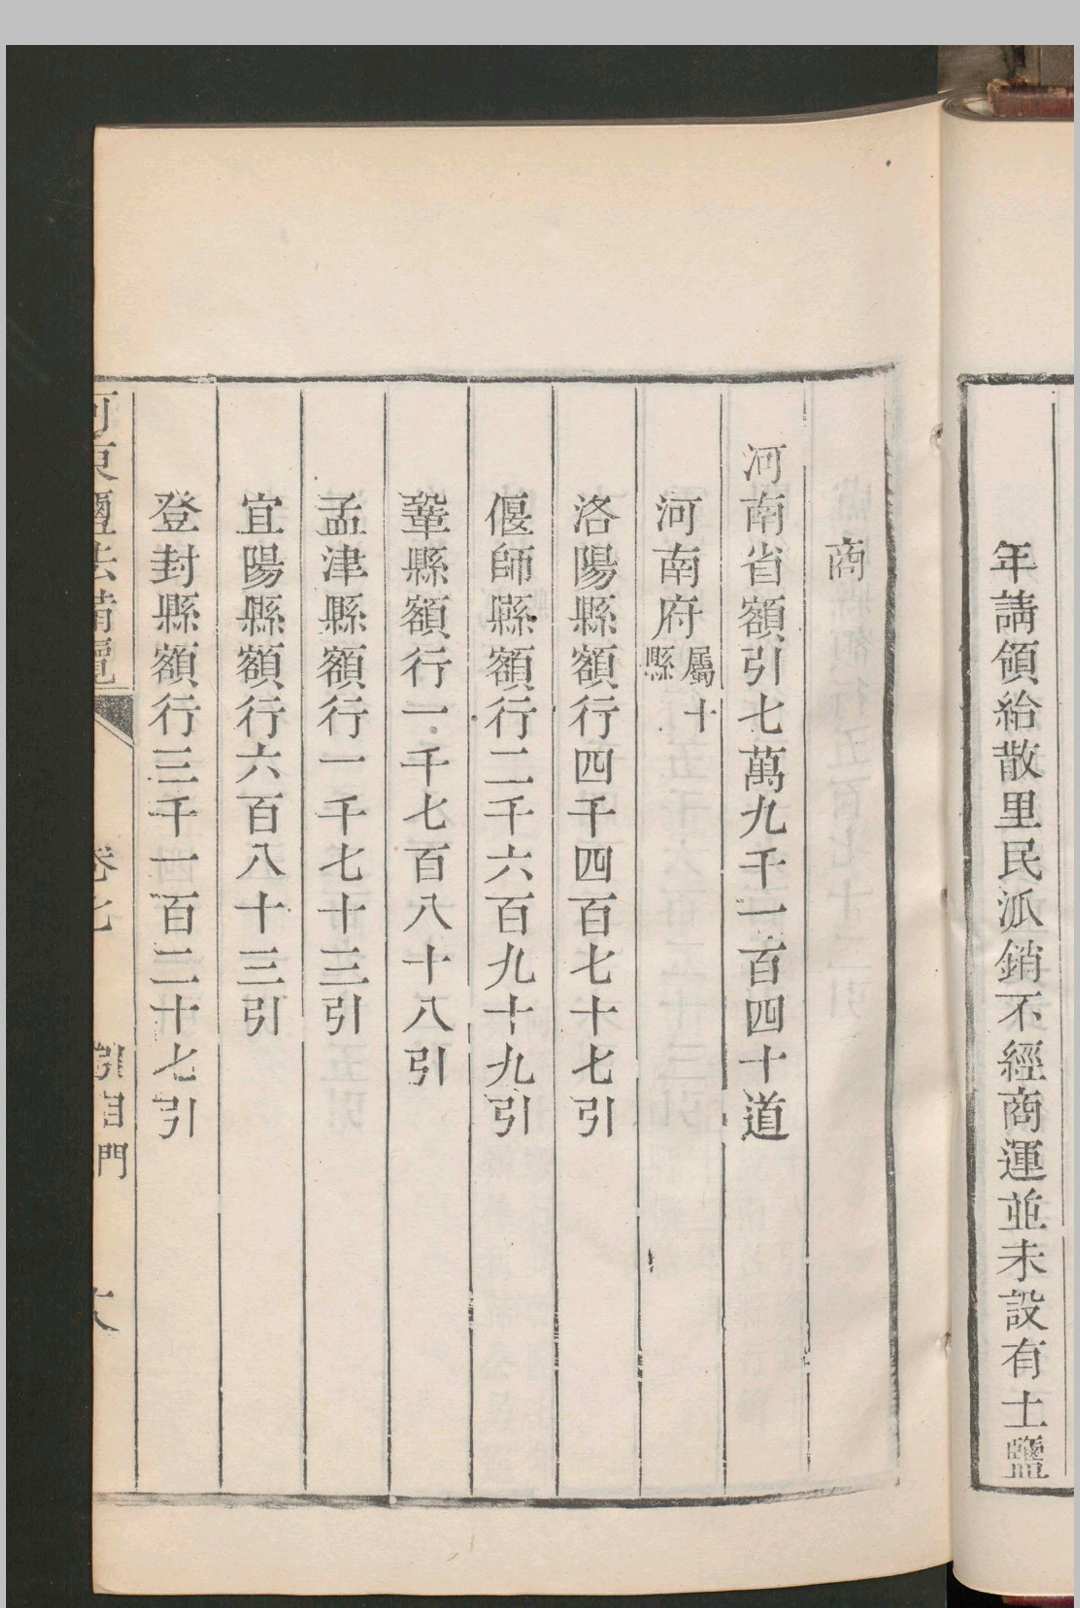 年請領給散里民派銷不經商運並未設有土鹽
商
河南省額引七萬九千一百四十道
河南府屬十縣
洛陽縣額行四千四百七十七引
偃師縣額行二千六百九十九引
鞏縣額行一千七百八十八引
孟津縣額行一千七十三引
宜陽縣額行六百八十三引
登封縣額行三千一百二十七引
河東鹽法備覽 卷七 引目門